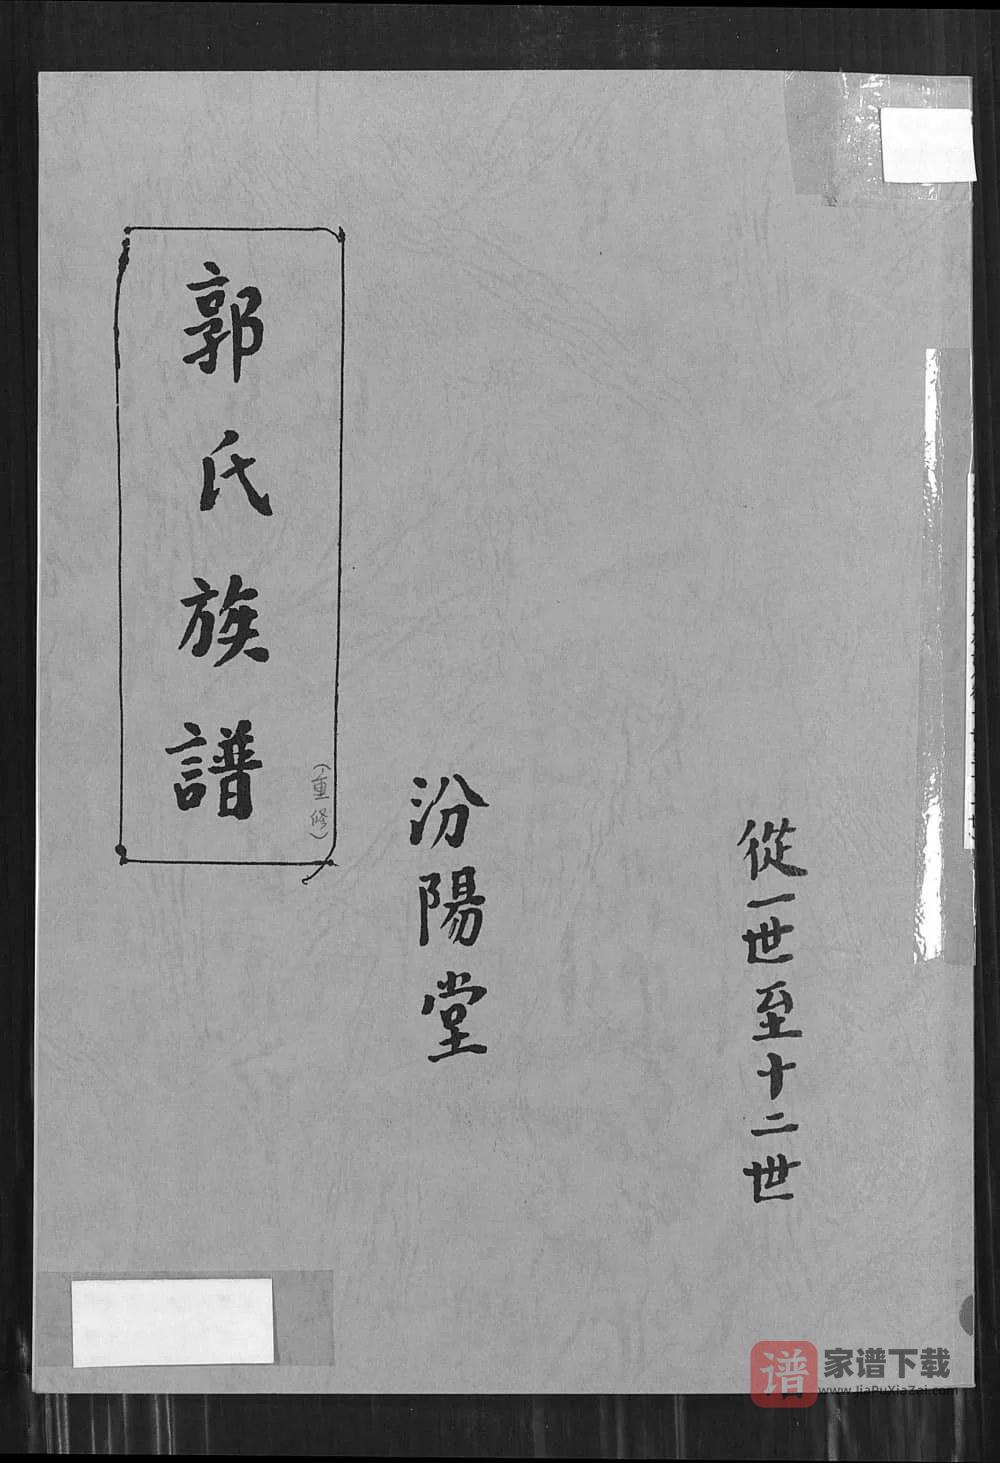 從一世至十二世
汾陽堂
郭氏族譜
(重修)
谱
家谱下载
www.JiaPuXiaZai.com